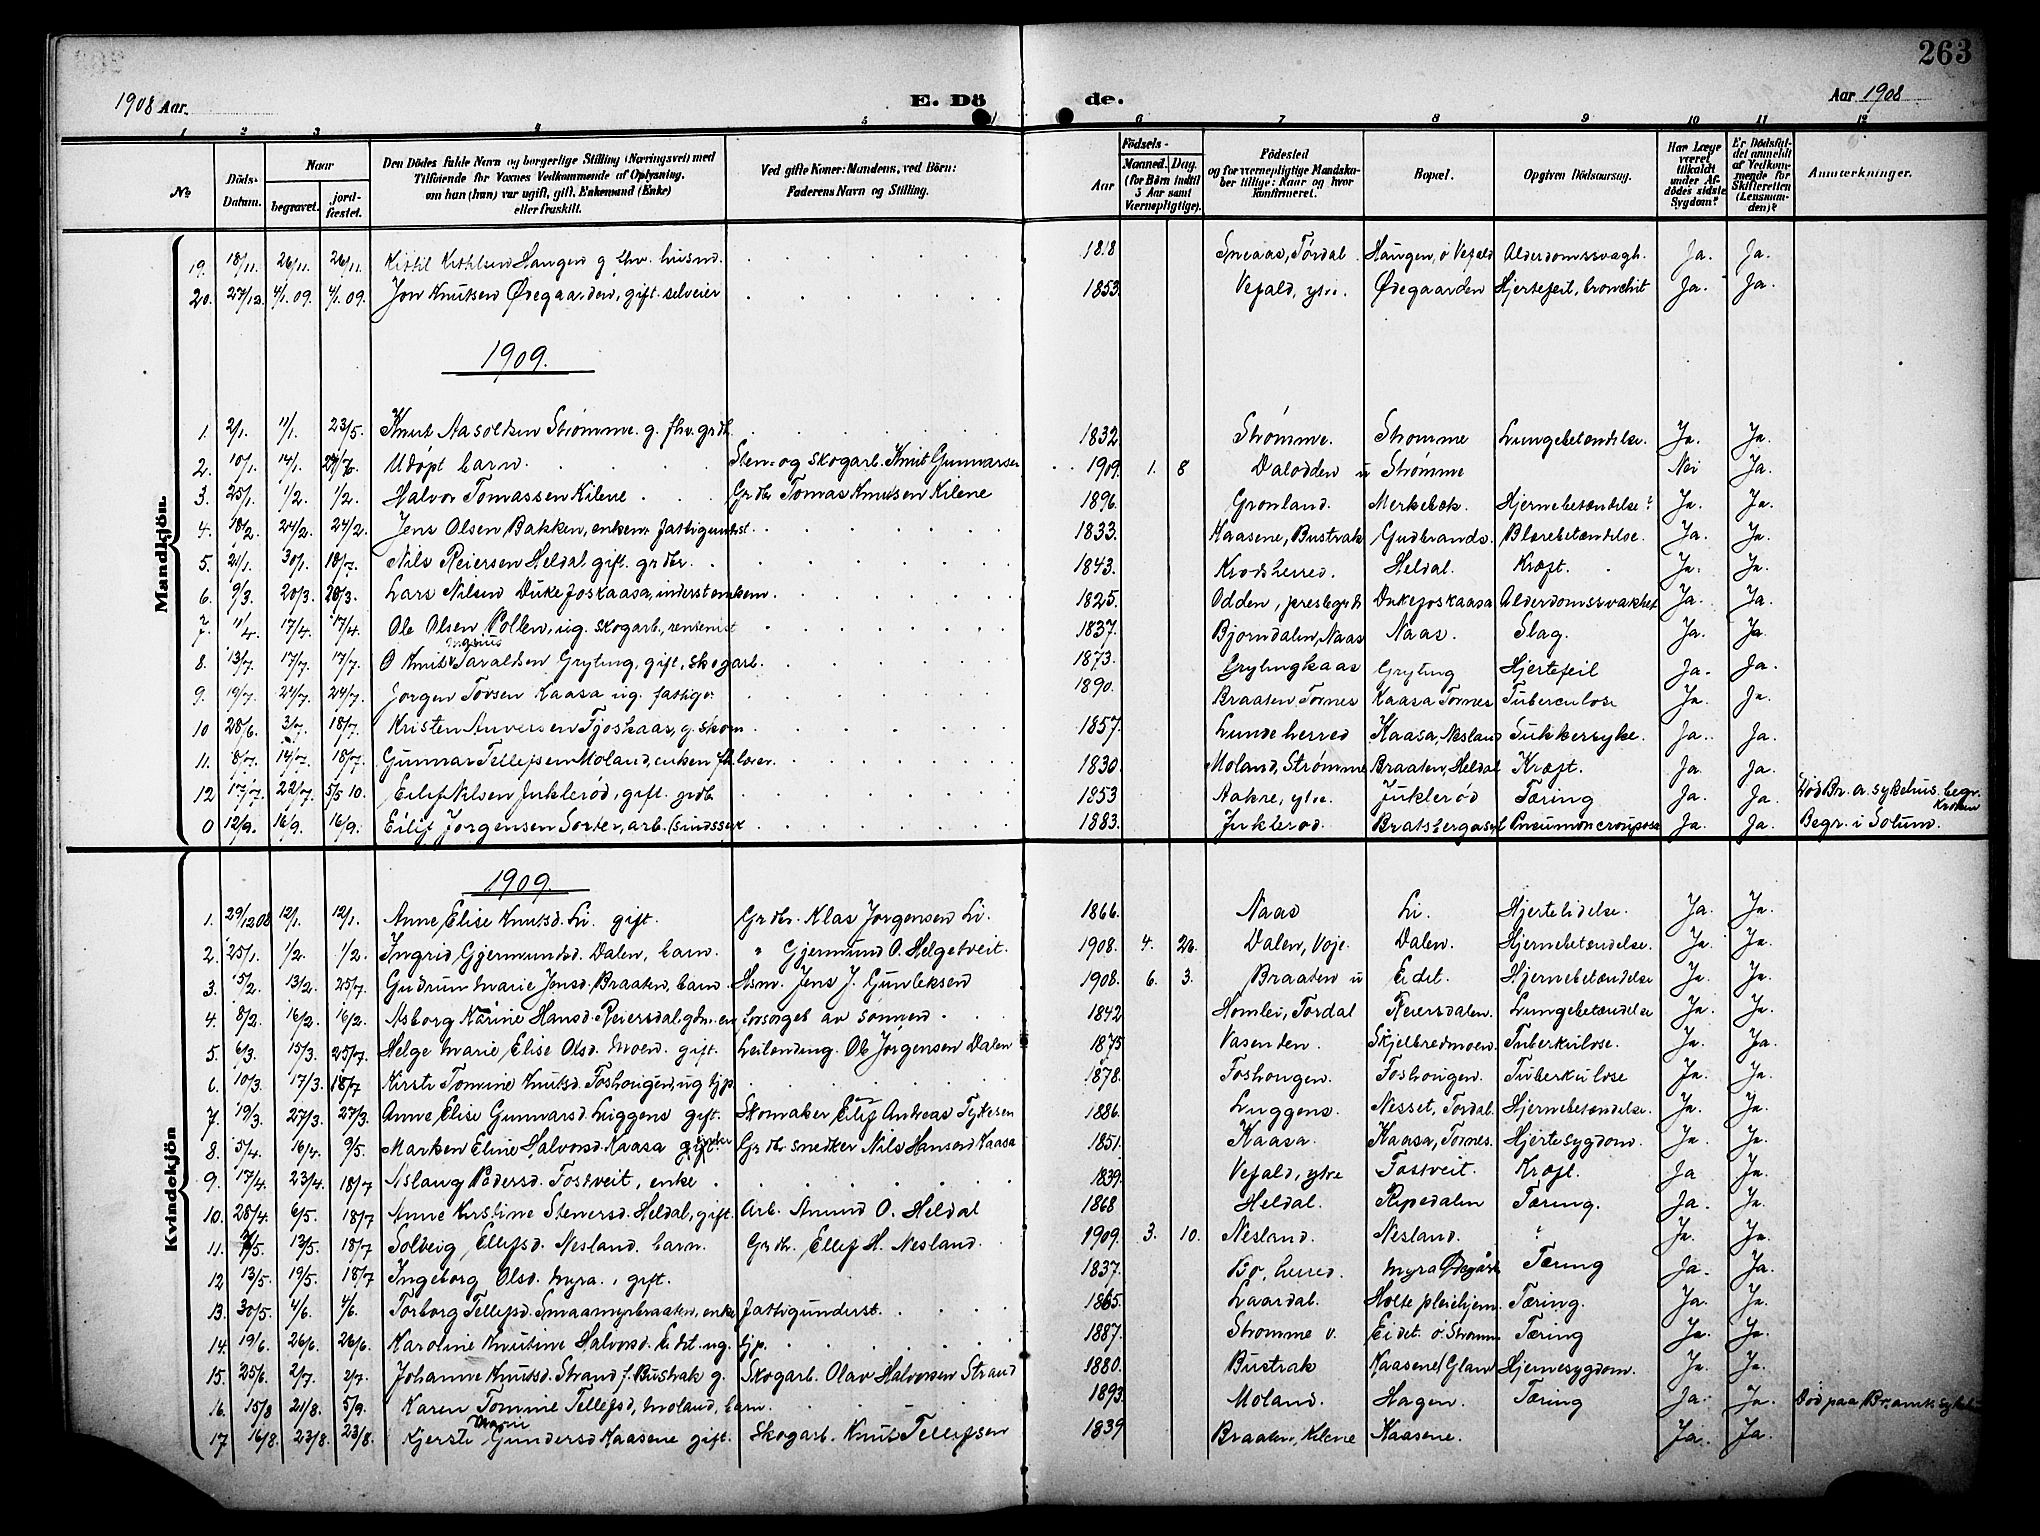 263
1908 Aar. E. Dö de. Aar 1908
1 2 3 4 5 6 7 8 9 10 11 12
No.
Döds-Datum.
Naar
begravet.
jord-fæstet.
Den Dödes fulde Navn og borgerlige Stilling (Næringsvei) med
Tilføiende for Voxnes Vedkommende af Oplysning,
om han (hun) var ugift, gift, Enkemand (Enke)
eller fraskilt.
Ved gifte Koner: Mandens, ved Börn:
Faderens Navn og Stilling.
Födsels-
Aar
Maaned. Dag.
(for Börn indtil
3 Aar samt
Værnepligtige).
Födested
og for værnepligtige Mandska-
ber tillige: Naar og hvor
konfirmeret.
Bopæl.
Opgiven Dödsaarsag.
Har Læge
været
tilkaldt
under Af-
dödes sidste
Sygdom?
Er Dödsfal-
det anmeldt
af Vedkom-
mende for
Skifteretten
(Lensman-
den)?
Anmærkninger.
Mandkjön.
19. 18/11. 26/11. 26/11. Kittil Kittilsen Haugen g. fhv. husmd. 1818 Sneaas, Tørdal Haugen, ö Vefald Alderdomssvagh. Ja. Ja.
20. 27/12. 4/1. 09. 4/1. 09. Jon Knutsen Ødegaarden, gift selveier 1853 Vefald, ytre. Ødegaarden Hjertefeil, bronchit Ja. Ja.
1909.
1. 2/1. 11/1. 23/5. Knut Aasoldsen Strømme. g. fhv. grdb. 1832 Strømme. Strømme Lungebetændelse. Ja. Ja.
2. 10/1. 14/1. Udøpt barn. Sten- og skogarb. Knut Gunnarsen 1909. 1. 8 Dalodden u Strømme Nei Ja.
3. 25/1. 1/2. 1/2. Halvor Tomassen Kilene Grdbr Tomas Knutsen Kilene 1896. Grønland. Merkebæk. Hjernebetændelse? Ja. Ja.
4. 18/2. 24/2. 24/2. Jens Olsen Bakken, enkem. fattigunderst. 1833. Kaasene, Bustrak Gudbrands. Blærebetændelse. Ja. Ja.
5. 21/1. 30/1. 18/7. Nils Reiersen Heldal gift. grdbr. 1843. Krodsherred. Heldal. Kræft. Ja. Ja.
6. 9/3. 20/3. 20/3. Lars Nilsen Dukefoskaasa, inderst enkem. 1825. Odden, prestegrd. Dukefoskaasa Alderdomssvakhet Ja. Ja.
7. 11/4. 17/4. 17/4. Ole Olsen Pollen, ug. skogarb., rensenist 1837. Bjorndalen, Naas Naas. Slag. Ja. Ja.
8. 13/7. 17/7. 17/7. O Knut Ingenius Taraldsen Gryting, gift, skogarb. 1873. Grytingkaas Gryting Hjertefeil Ja. Ja.
9. 19/7. 24/7. 24/7. Jorgen Tovsen Kaasa ug. fattigv. 1890. Braaten Tornes Kaasa Tornes Tuberculose Ja. Ja.
10 28/6. 3/7. 18/7. Kristen Anversen Fjoskaas, g. skom. 1857. Lunde herred Kaasa, Nesland Sukkersyke. Ja. Ja.
11. 8/7. 14/7. 18/7. Gunnar Tellefsen Moland, enkem fh. lærer. 1830. Moland, Strømme Braaten, Heldal Kræft. Ja. Ja.
12 17/7. 22/7. 5/5 10. Eilif Nilsen Juklerød, gift. grdbr 1853 Aakre, ytre. Juklerød Tæring Ja. Ja. Død Br. a. sykehus. begr. Kroken
0 12/9. 16/9. 16/9. Eilif Jorgensen Sorter, arb. (sindssyk 1883. Juklerod. Bratsbergasyl Pneumon crouposa Ja. Ja. Begr. i Solum.
Kvindekjön
1909.
1. 29/12 08 12/1. 12/1. Anne Elise Knutsd. Li. gift. Grdbr. Klas Jorgensen Li. 1866. Naas Li. Hjertelidelse. Ja. Ja.
2. 25/1. 1/2. 1/2. Ingrid Gjermundsd. Dalen, barn. " Gjermund O. Helgetveit. 1908. 4. 22. Dalen, Voje. Dalen. Hjernebetændelse. Ja. Ja.
3. 5/2. 13/2. 25/7. Gudrun Marie Jensd. Braaten, barn. Hsm. Jens J. Gunleksend 1908. 6. 3. Braaten u Eidet. Hjernebetændelse Ja. Ja.
4. 8/2. 16/2. 16/2. Asborg Karine Hansd. Reiersdal, gdm. en forsorget av sønnen 1842 Homlei, Tordal Reiersdalen. Lungebetændelse Ja. Ja.
5. 6/3. 15/3. 25/7. Helge Marie Elise Olsd. Moen. gift. Leilending. Ole Jorgensen Dalen 1875 Vasenden. Skjelbredmoen. Tuberkulose. Ja. Ja.
6. 10/3. 17/3. 18/7 Kirsti Tomine Knutsd. Foshaugen, ug tjp. 1878. Foshougen. Foshougen. Tuberkulose Ja. Ja.
7. 19/3. 27/3. 27/3. Anne Elise Gunnarsd. Luggens gift. Skomaker Elef Andreas Tykesen 1886. Luggens. Nesset, Tordal Hjernebetændelse. Ja. Ja.
8. 5/4. 16/4. 9/5. Marken Eline Halvorsd. Kaasa gift. Grdbr snedker Nils Hansen Kaasa 1851. Kaasa. Kaasa, Tornes. Hjertesygdom. Ja. Ja.
9. 17/4. 23/4. 18/7 Aslaug Pedersd. Tostveit, enke 1839. Vefald, ytre Tostveit. Kræft. Ja Ja.
10. 28/4. 6/5. 18/7 Anne Kirstine Stenersd. Heldal, gift. Arb. Amund O. Heldal 1868 Heldal. Ripedalen Tæring. Ja. Ja.
11. 13/5. 18/7 Solveig Ellefsd. Nesland. barn. Grdbr. Ellef H. Nesland. 1909. 3. 10. Nesland. Nesland. ? Ja. Ja.
12 13/5. 19/5. 18/7 Ingeborg Olsd. Myra., gift. 1837. Bo, herred. Myra Ødegård Tæring Ja. Ja.
13. 30/5. 4/6. 4/6. Torborg Tellefsd. Smaamyrbraaten, enke fattigunderst. 1865. Laardal. Holte pleiehjem. Tæring. Ja. Ja.
14. 19/6. 26/6. 26/6. Karoline Knutine Halvorsd. Eidet. ug. tjp. 1887. Strømme v. Eidet. ö. Strømme Tæring Ja. Ja.
15. 25/6. 2/7. 2/7. Johanne Knutsd. Strand f. Bustrak g. Skogarb. Olav Halvorsen Strand 1880. Bustrak Kaasene/Glan Hjernesygdom. Ja. Ja.
16. 15/8 21/8. 5/9. Karen Tomine Tellefsd, Moland, barn. 1893. Moland. Hagen. Tæring Ja. Ja. Død paa Br. amts syke
17 16/8. 23/8. 23/8. Kjersti Marie Gundersd Kaasene gift. Skogarb. Knut Tellefsen 1839 Braaten, Kilene Kaasene. Ja. Ja.